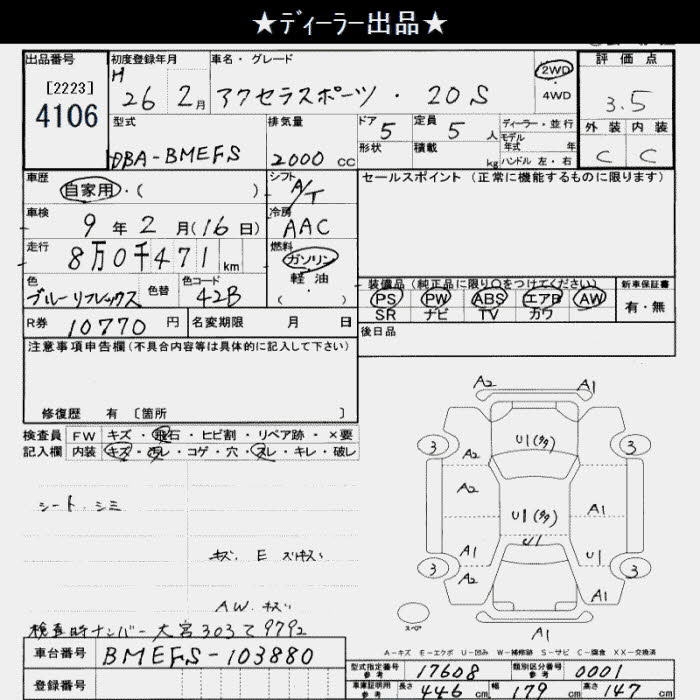 ★ディーラー出品★
出品番号 初度登録年月 車名・グレード 評価点
[2223] H26年 2月 アクセラスポーツ・20S 2WD 4WD 3.5
4106 型式 排気量 ドア 5 定員 5人 ディーラー・並行 外装 内装
DBA-BMEFS 2000cc 形状 積載 kg モデル年式 年 ハンドル 左・右 C C
車歴 自家用・( ) シフト A/T セールスポイント(正常に機能するものに限ります)
車検 9年2月(16日) 冷房 AAC
走行 8万0千471km 燃料 ガソリン 軽油 ( )
色 ブルーリフレックス 色替 色コード 42B 装備品(純正品に限り○をつけてください) 新車保証書
PS PW ABS エアB AW 有・無
SR ナビ TV カワ
R券 10770円 名変期限 月 日 後日品
注意事項申告欄(不具合内容等は具体的に記入して下さい)
修復歴 有 〔箇所 〕
検査員 FW キズ・飛石・ヒビ割・リペア跡・×要
記入欄 内装 キズ・汚レ・コゲ・穴・スレ・キレ・破レ
シート・シミ
A2 A1
U1(多)
3 A2 3
A2 U1(多) A1
U1
A1 U1
3 A2 A1 3
スペア A1
AW.キズ
検査時ナンバー大宮303て9792
A-キズ E-エクボ U-凹み W-補修跡 S-サビ C-腐食 XX-交換済
車台番号 BMEFS-103880
登録番号
型式指定番号 参考 17608 類別区分番号 参考 0001
車庫証明用 参考 長さ 446cm 幅 179cm 高さ 147cm